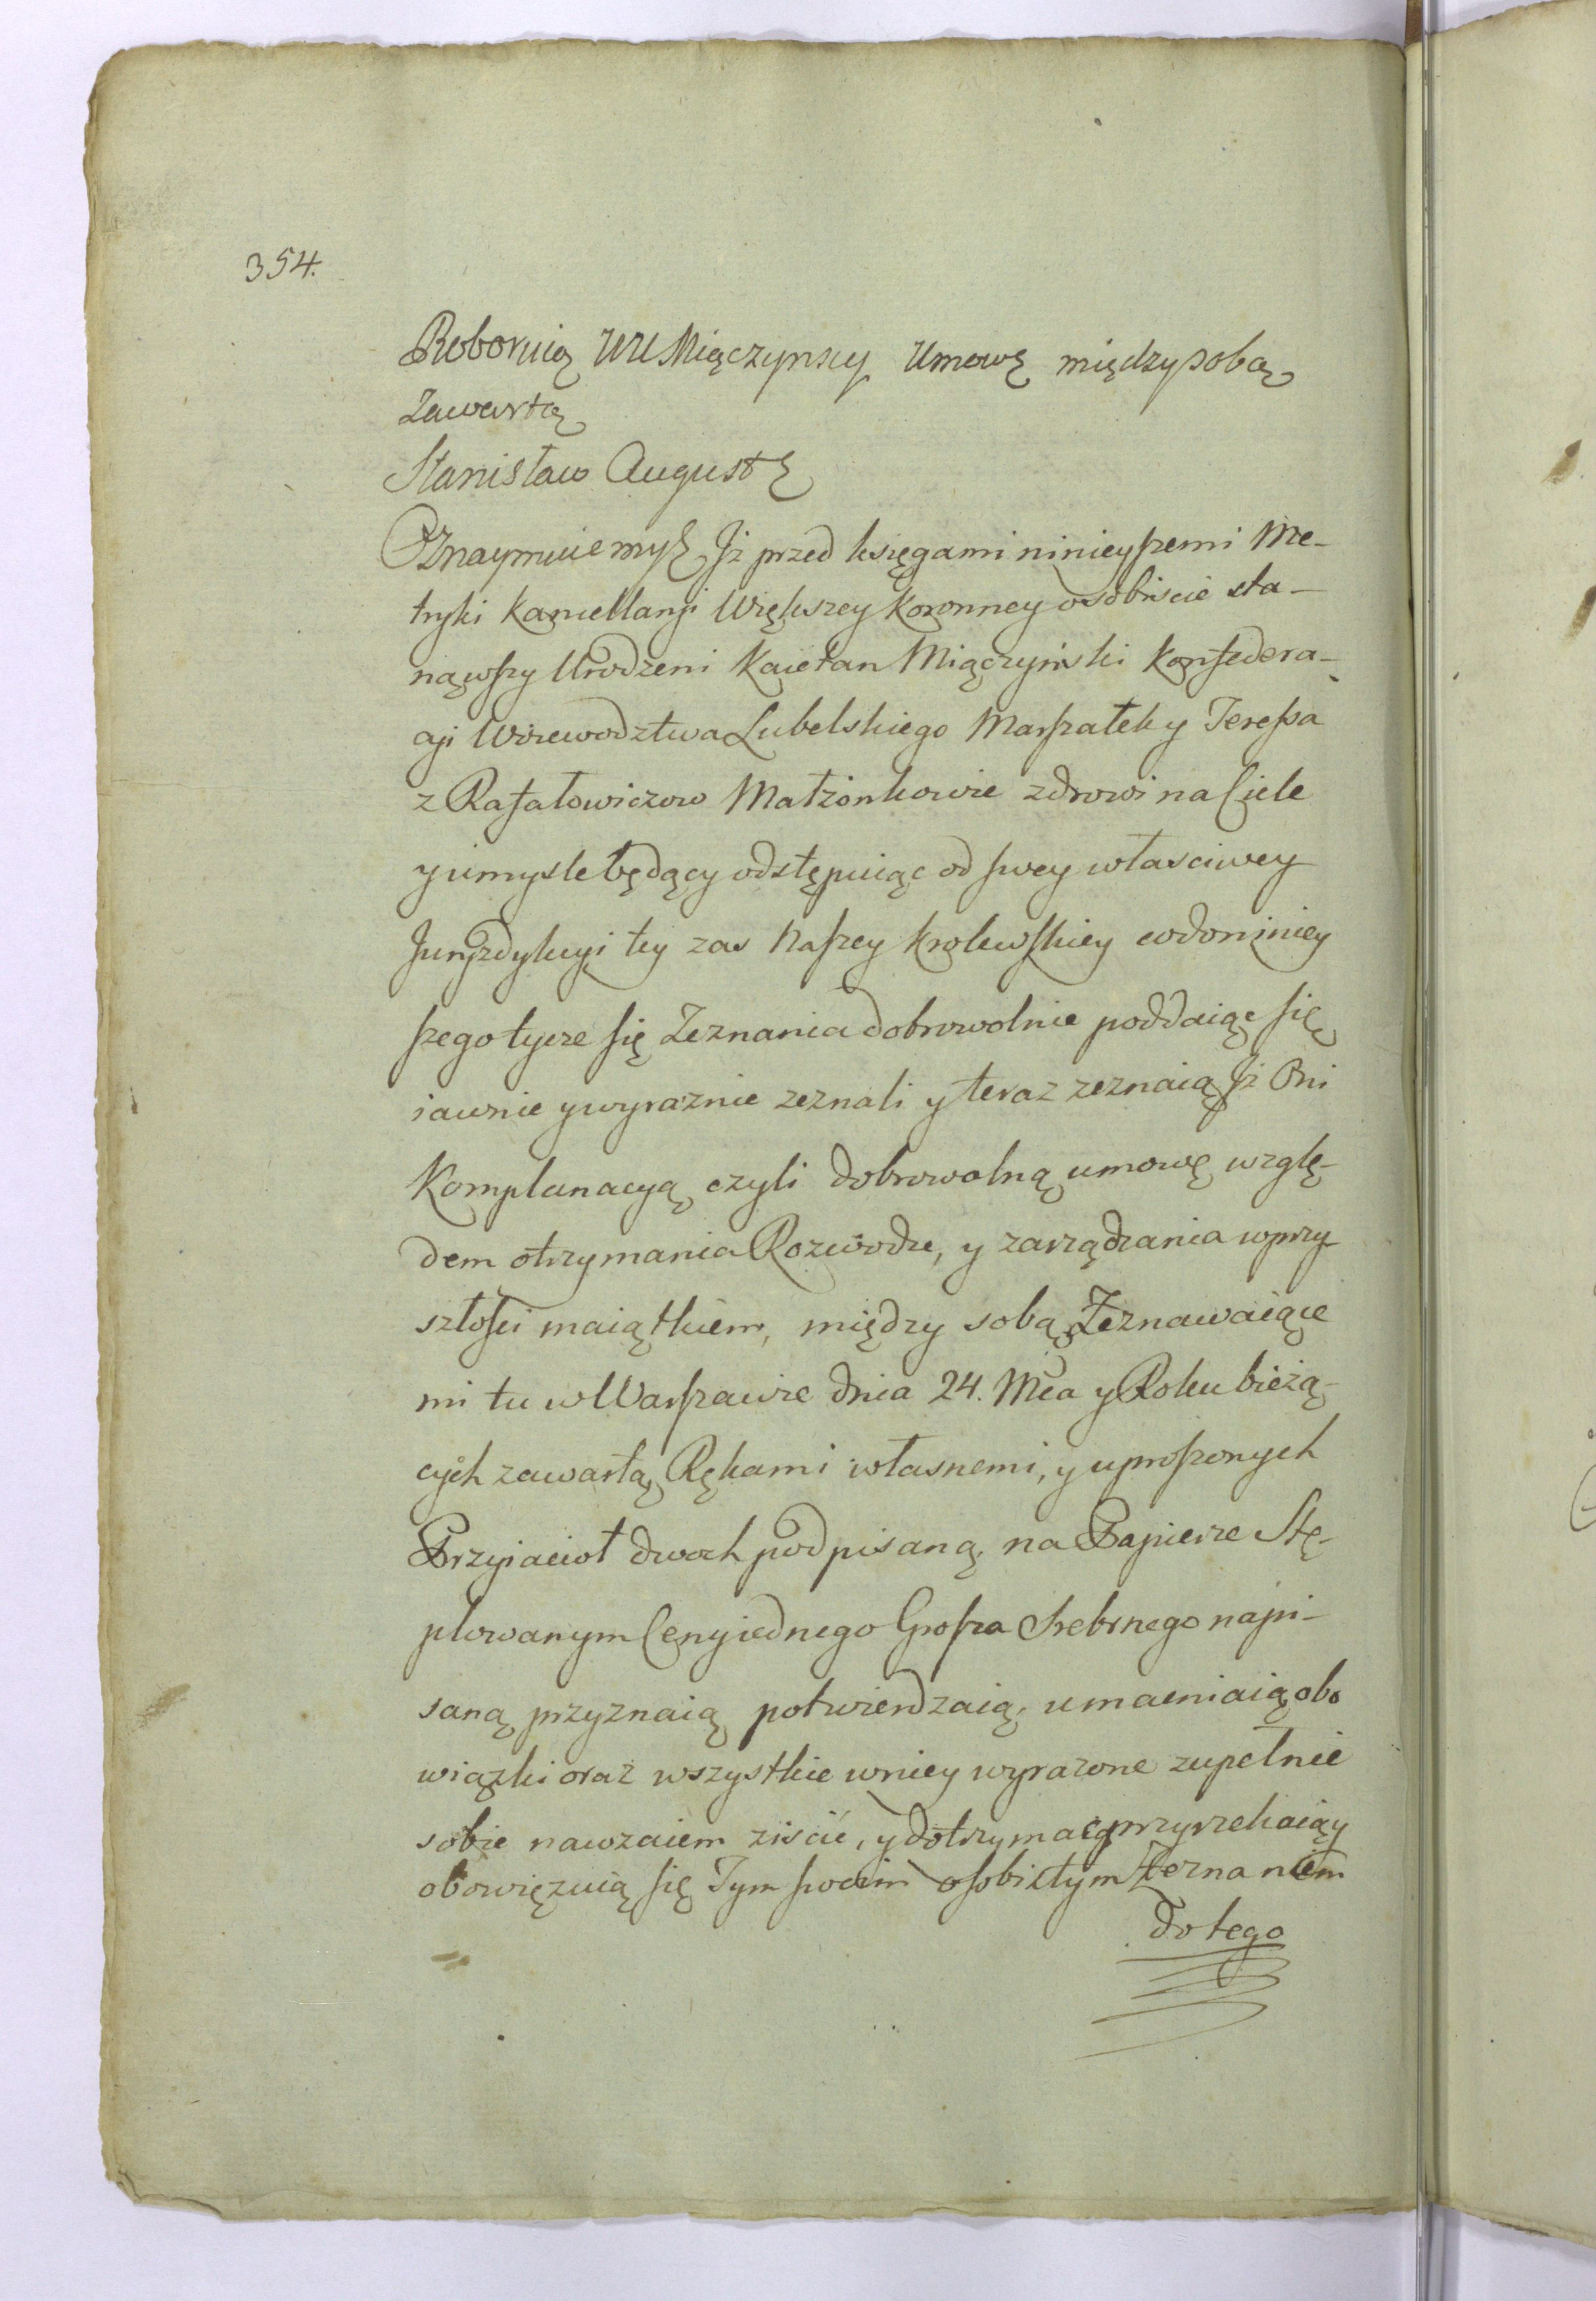 354.
Roboruią UU Miączynscy Umowę między sobą
zawartą
Stanisław August
Oznaymuiemy Jż przed księgami ninieyszemi Me-
tryki Kancellaryi Większey Koronney osobiscie sta-
nąwszy Urodzeni Kaietan Miączyński Konfedera-
cyi Woiewodztwa Lubelskiego Marszałek y Teressa
z Rafałowiczow Małżonkowie zdrowi na Ciele
y umysle będący odstępuiąc od swey własciwey
Juryzdykcyi tey zas Naszey Krolewskiey co do niniey
szego tycze się Zeznania dobrowolnie poddaiąc się
iawnie y wyraznie zeznali y teraz zeznaią Jż Oni
Komplanacyą czyli dobrowolną umowę wzglę-
dem otrzymania Rozwodu, y zarządzania w przy
szłości maiątkiem, między sobą Zeznawaiące
mi tu w Warszawie dnia 24. Mca y Roku bieżą-
cych zawartą, Rękami własnemi, y uproszonych
Przyiacioł dwoch podpisaną, na Papierze Stę-
plowanym Ceny iednego Grosza Srebrnego napi-
saną przyznaią potwierdzaią, umacniaią obo
wiązki oraz wszystkie w niey wyrażone zupełnie
sobie nawzaiem ziscić, y dotrzymać przyrzekaią y
obowięzuią się Tym swoim osobistym Zeznaniem
do tego